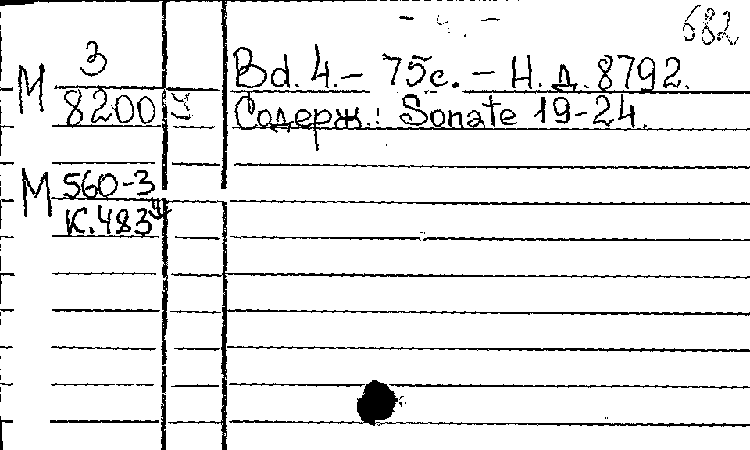 - 4. -
682
M 3
8200 у
Bd. 4. – 75с. – Н. д. 8792.
Содерж.: Sonate 19-24.
M 560-3
К.483